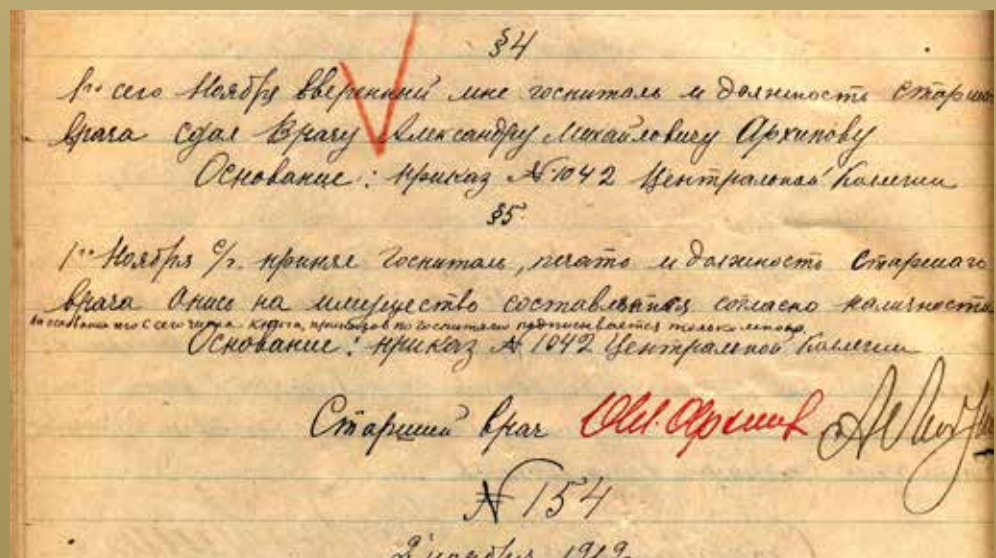 §4
1го сего Ноября вверенный мне госпиталь и должность старшаго
врача сдал Врачу Александру Михайловичу Архипову
Основание: приказ №1042 Центральной Коллегии
§5
1го Ноября с/г. принял госпиталь, печать и должность Старшаго
врача Опись на имущество составляется согласно наличности
с сего числа книга приказов по госпиталю подписывается только мною,
Основание: приказ № 1042 Центральной Коллегии
Старший врач Архипов
№154
2 ноября 1919